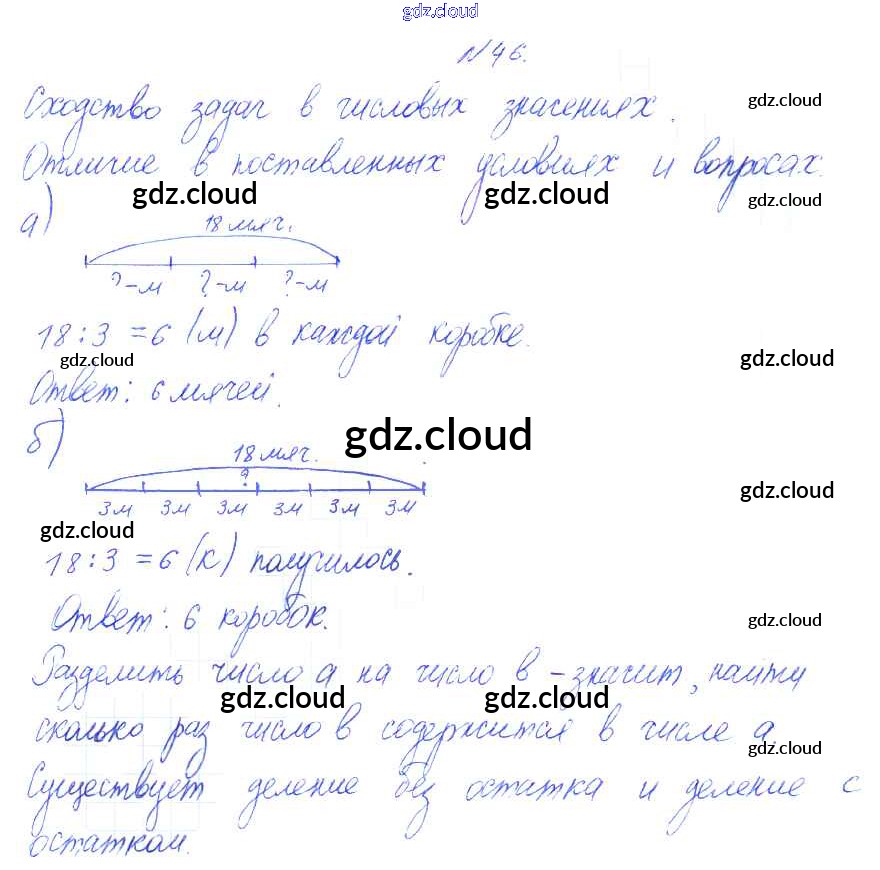 gdz.cloud
№46.
Сходство задач в числовых значениях.
gdz.cloud
Отличие в поставленных условиях и вопросах.
gdz.cloud gdz.cloud gdz.cloud
а)
18 мяч.
?-м ?-м ?-м
18:3=6 (м) в каждой коробке.
gdz.cloud gdz.cloud
Ответ: 6 мячей.
gdz.cloud
б)
18 мяч.
?
3м 3м 3м 3м 3м 3м
gdz.cloud
gdz.cloud
18:3=6 (к) получилось.
Ответ: 6 коробок.
gdz.cloud
Разделить число а на число в - значит, найти
gdz.cloud gdz.cloud
сколько раз число в содержится в числе а
gdz.cloud
Существует деление без остатка и деление с
остатком.